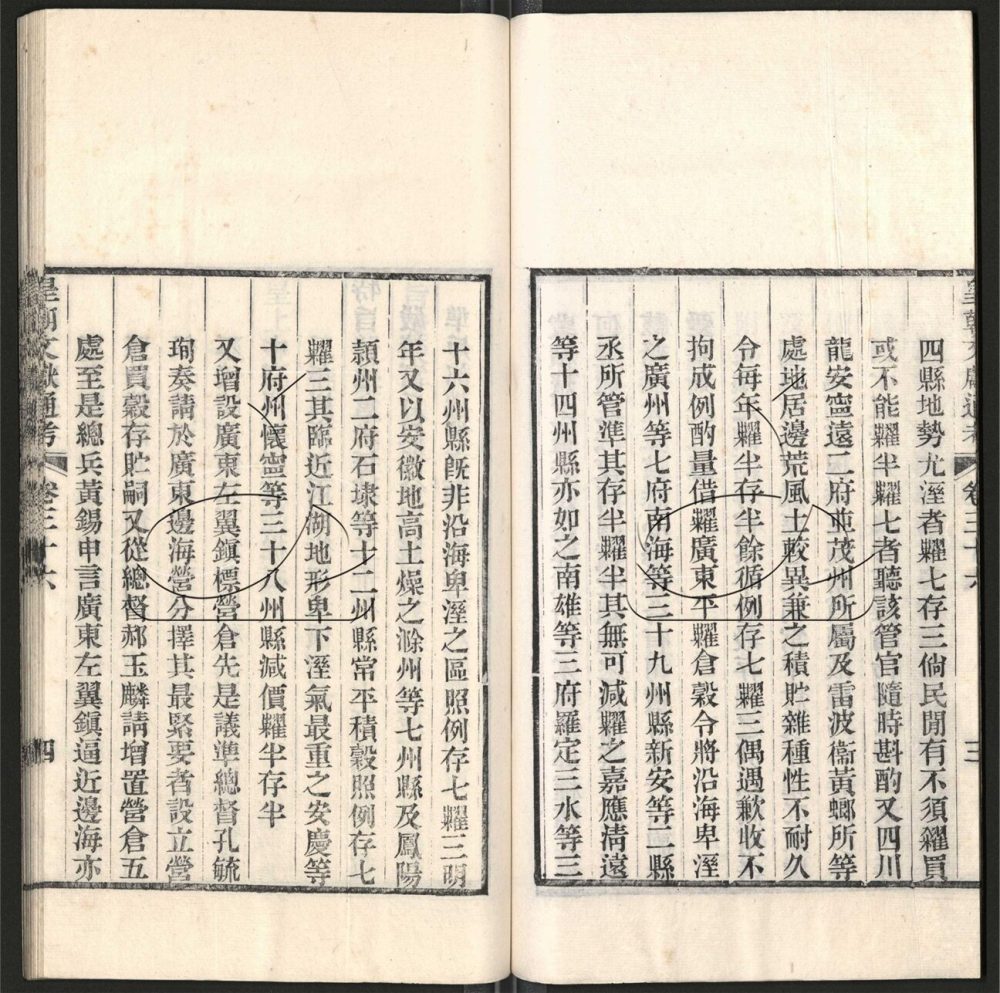 皇朝文獻通考 卷三十六 三
四縣地勢尤溼者糶七存三倘民閒有不須糴買
或不能糶半糶七者聽該管官隨時斟酌又四川
龍安寧遠二府並茂州所屬及雷波衞黃螂所等
處地居邊荒風土較異兼之積貯雜種性不耐久
令每年糶半存半餘循例存七糶三偶遇歉收不
拘成例酌量借糶廣東平糶倉穀令將沿海卑溼
之廣州等七府南海等三十九州縣新安等二縣
丞所管準其存半糶半其無可減糶之嘉應淸遠
等十四州縣亦如之南雄等三府羅定三水等三
十六州縣旣非沿海卑溼之區照例存七糶三明
年又以安徽地高土燥之滁州等七州縣及鳳陽
潁州二府石埭等十二州縣常平積穀照例存七
糶三其臨近江湖地形卑下溼氣最重之安慶等
十府州懷寧等三十八州縣減價糶半存半
又增設廣東左翼鎮標營倉先是議準總督孔毓
珣奏請於廣東邊海營分擇其最緊要者設立營
倉買穀存貯嗣又從總督郝玉麟請增置營倉五
處至是總兵黃錫申言廣東左翼鎮逼近邊海亦
皇朝文獻通考 卷三十六 四